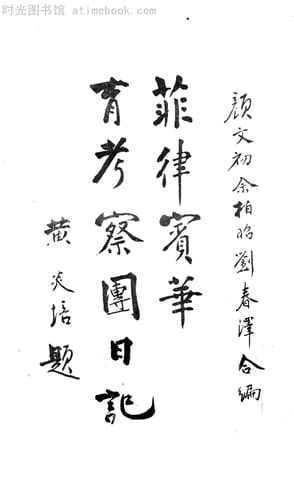 时光图书馆 - atimebook.com
顔文初余柏昭劉春澤合編
菲律賓華
育考察團日記
黄炎培題